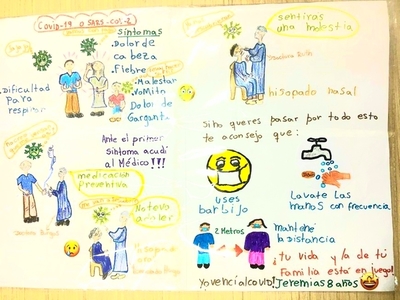 Covid-19 o SARS-CoV-2
Síntomas
• Dolor de
cabeza
• Fiebre
• Malestar
• Vomito
Dolor de
Garganta
Dificultad
para
respirar
Ante el primer
Síntoma acudí
al Médico!!!
medicación
preventiva
No te va
a doler
sentiras
una molestia
hisopado nasal
Si no queres pasar por todo esto
te aconsejo que:
uses
barbijo
Lavate las
manos con frecuencia
2 Metros
Mantené
la distancia
¡tu vida y la de tú
Familia está en juego!
Yo vencí al covid! Jeremias 8 años